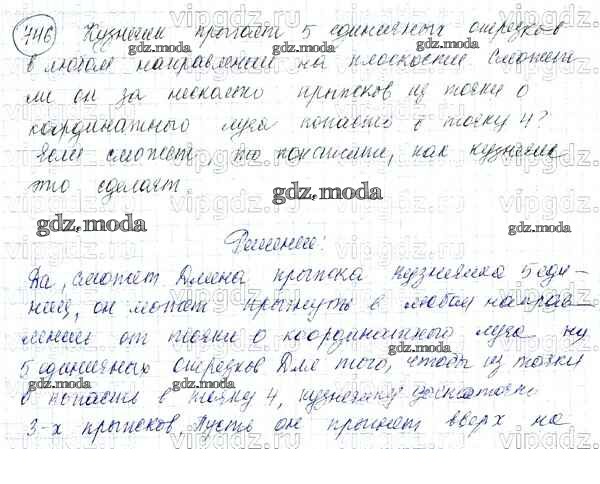 746 Кузнечик прыгает 5 единичных отрезков
в любом направлении на плоскости Сможет
ли он за несколько прыжков из точки О
координатного луча попасть в точку 4?
Если сможет, то покажите, как кузнечик
это сделает.
Решение:
Да, сможет Длина прыжка кузнечика 5 еди-
ниц, он может прыгнуть в любом направ-
лении от точки О координатного луча на
5 единичных отрезков Для того, чтобы из точки
О попасть в точку 4, кузнечику достаточно
3-х прыжков. Пусть он прыгнет вверх на
gdz.moda
vipgdz.com